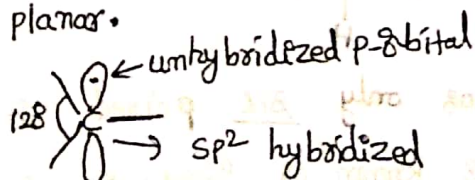 planar.
← unhybridized p-orbital
128 C
→ sp² hybridized